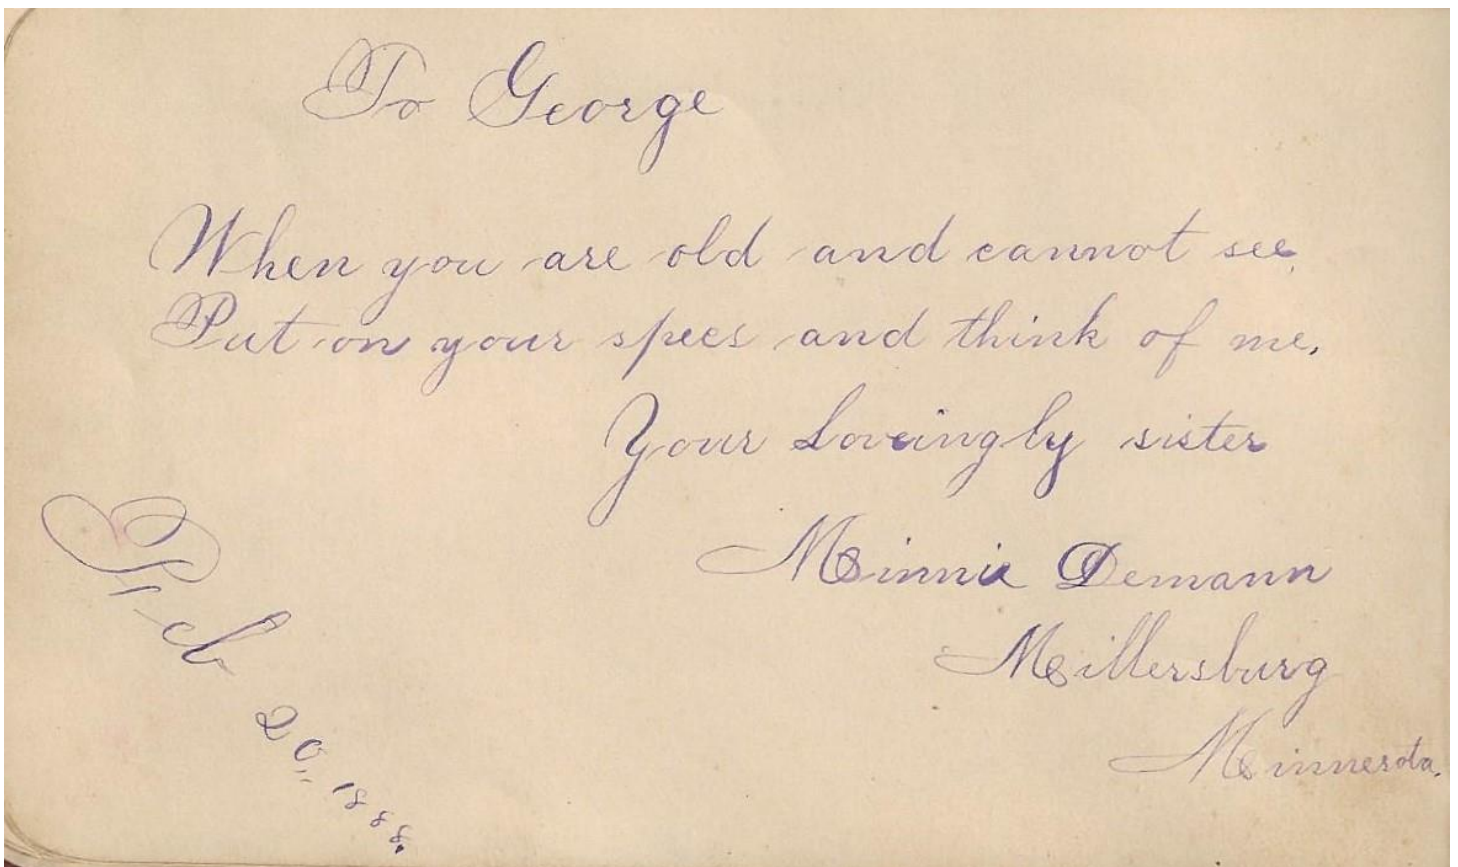 To George
When you are old and cannot see,
Put on your specs and think of me.
Your Loveingly sister
Minnie Demann
Millersburg
Minnesota.
Feb 20, 1888.